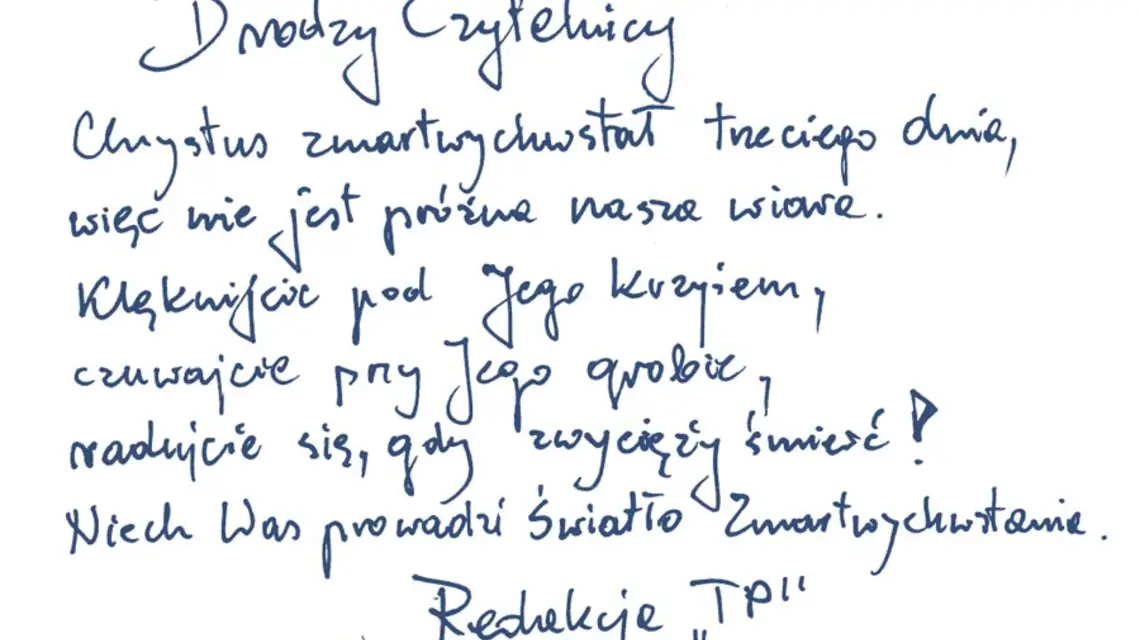 Drodzy Czytelnicy
Chrystus zmartwychwstał trzeciego dnia,
więc nie jest próżna nasza wiara.
Klęknijcie pod Jego krzyżem,
czuwajcie przy Jego grobie,
radujcie się, gdy zwycięży śmierć!
Niech Was prowadzi Światło Zmartwychwstania.
Redakcja „TP"